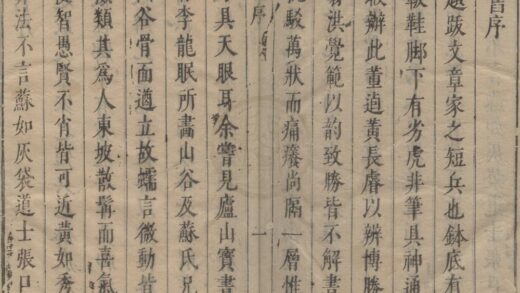 序
題跋文章家之短兵也鉢底有
軟鞋脚下有劣虎非筆具神通
敢辦此董逌黃長睿以辨博勝
翁洪覺範以韵致勝皆不解書
駁萬狀而痛癢尚隔一層惟
序 一
具天眼耳余嘗見廬山寶書
李龍眠所畵山谷及蘇氏兄
谷骨面遒立故蠕言微動皆
類其爲人東坡散髯而喜氣
智愚賢不肖皆可近黃如秀
法不言蘇如灰袋道士張口